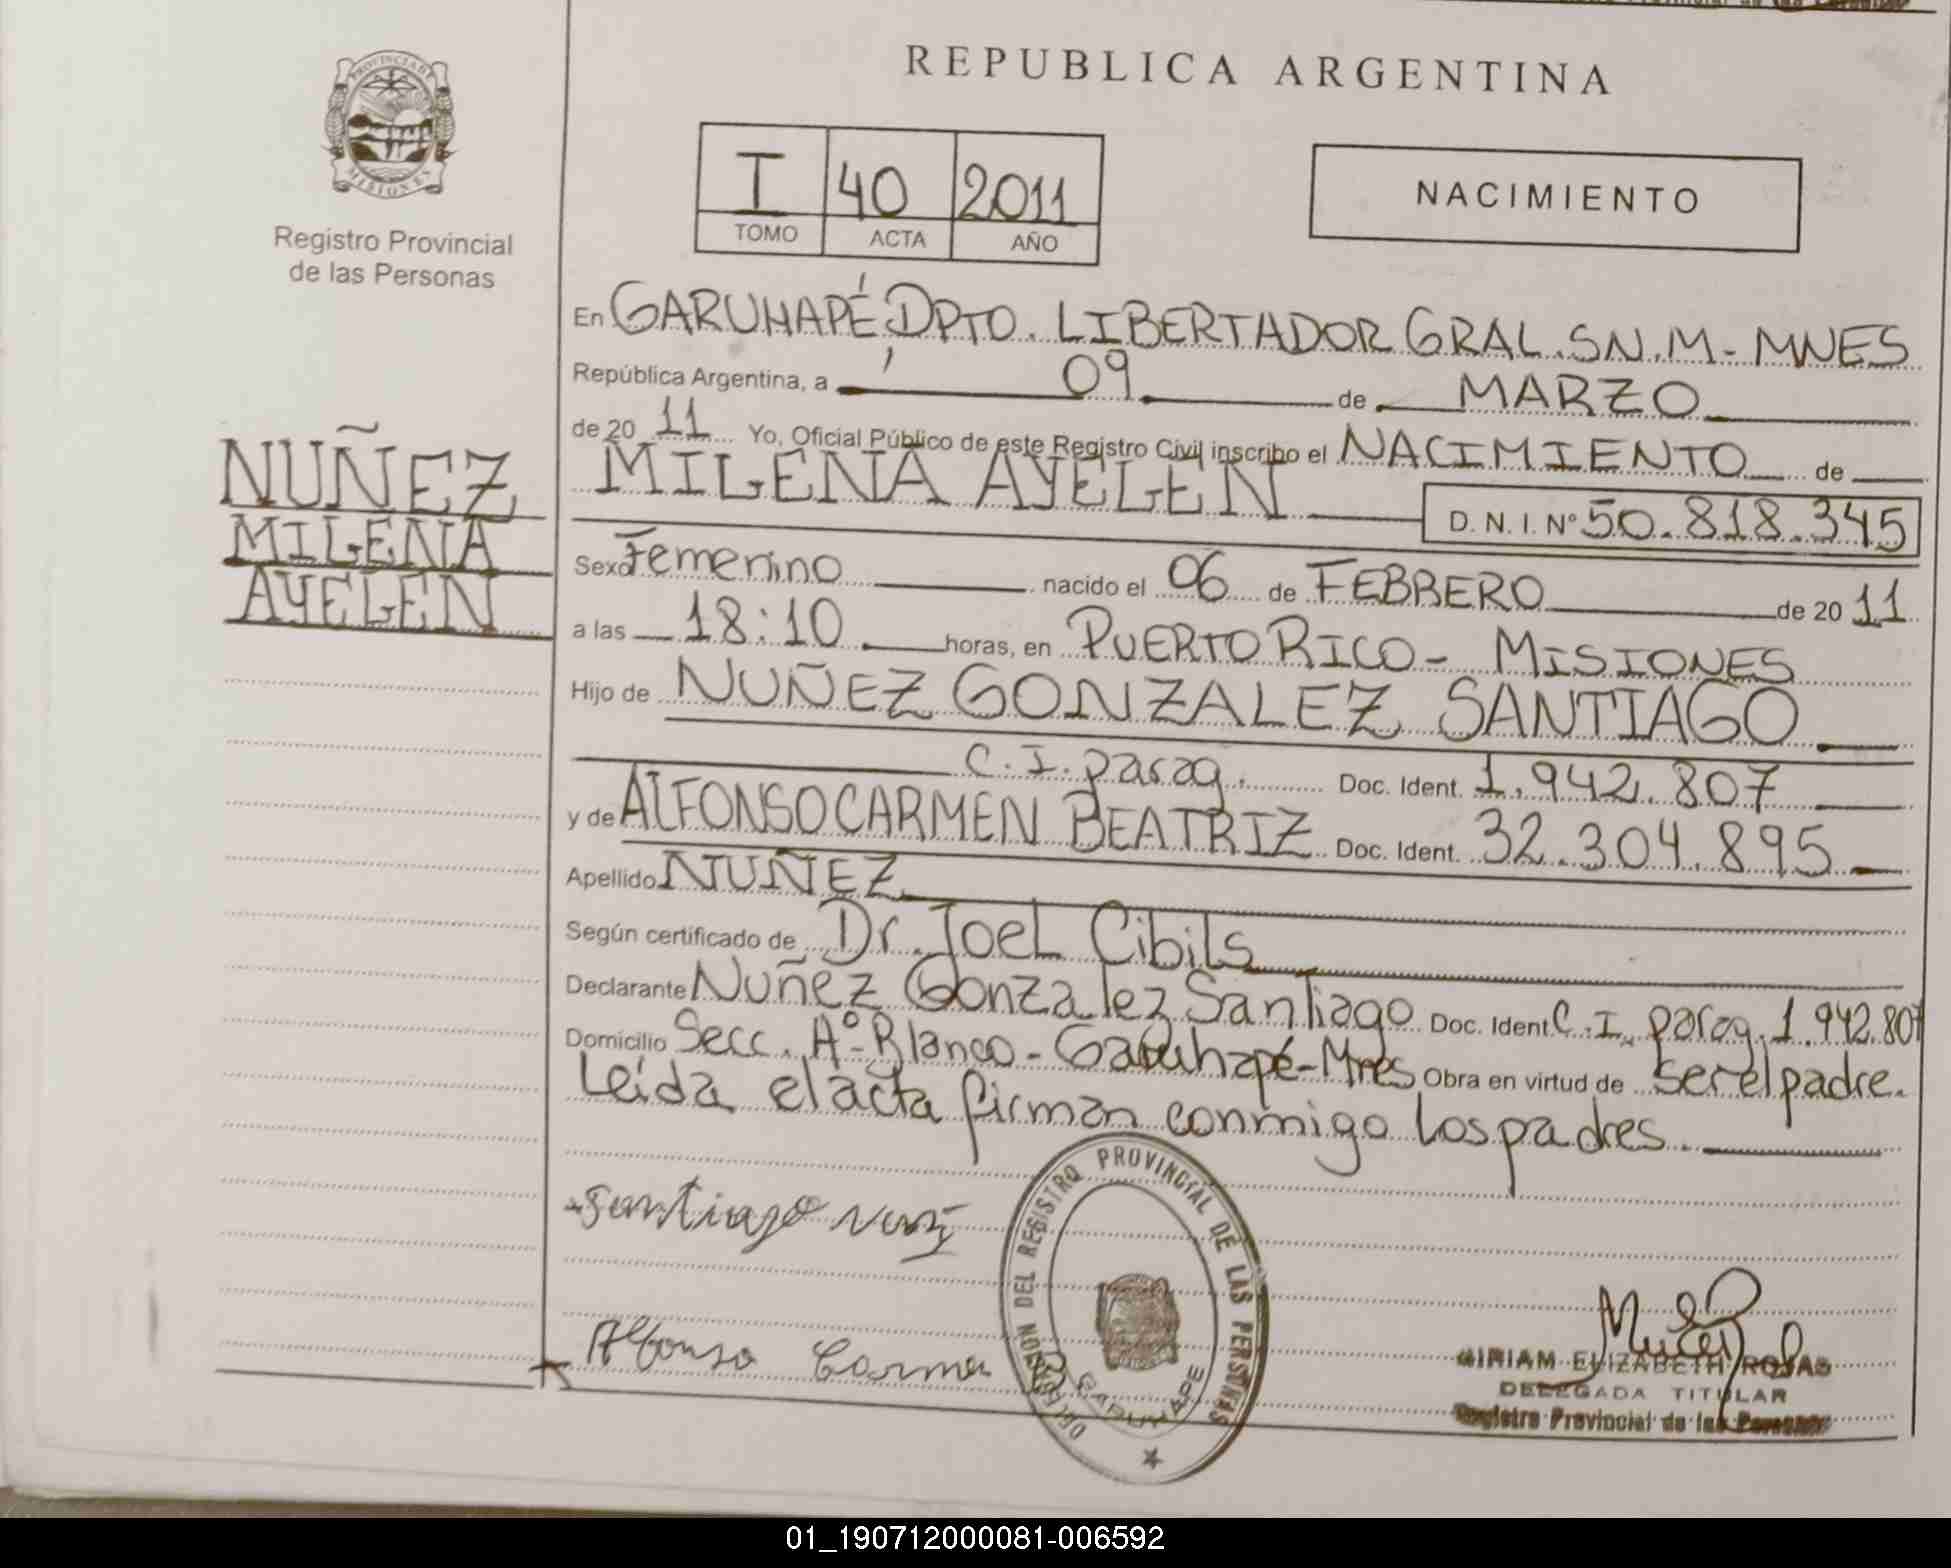 REPUBLICA ARGENTINA
PROVINCIA DE
MISIONES
Registro Provincial
de las Personas
I 40 2011
TOMO ACTA AÑO
NACIMIENTO
En GARUHAPÉ, DPTO. LIBERTADOR GRAL. SN. M - MNES
República Argentina, a 09 de MARZO
de 20 11 Yo, Oficial Público de este Registro Civil inscribo el NACIMIENTO de
NUÑEZ
MILENA
AYELEN
MILENA AYELEN
D. N. I. Nº 50.818.345
Sexo Femenino nacido el 06 de FEBRERO de 20 11
a las 18:10 horas, en PUERTO RICO - MISIONES
Hijo de NUÑEZ GONZALEZ SANTIAGO
C. I. parag. Doc. Ident. 1.942.807
y de ALFONSO CARMEN BEATRIZ Doc. Ident. 32.304.895
Apellido NUÑEZ
Según certificado de Dr. Joel Cibils
Declarante Nuñez Gonzalez Santiago Doc. Ident C. I. parag. 1.942.807
Domicilio Secc. Aº Blanco - Garuhapé - Mnes Obra en virtud de ser el padre.
Leída el acta firman conmigo los padres
Santiago
Alfonso Carmen
DELEGACION DEL REGISTRO PROVINCIAL DE LAS PERSONAS
GARUHAPE
MIRIAM ELIZABETH ROJAS
DELEGADA TITULAR
Registro Provincial de las Personas
01_190712000081-006592